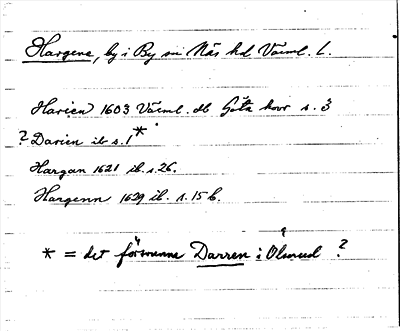 Hargene, by i By sn Näs hd Värml. L.
Harien 1603 Värml. db Göta hovr s. 3
? Darien ib s. 1 *
Hargan 1621 ib. s. 26.
Hargenn 1629 ib. s. 15 b.
* = det försvunne Darren i Ölserud ?